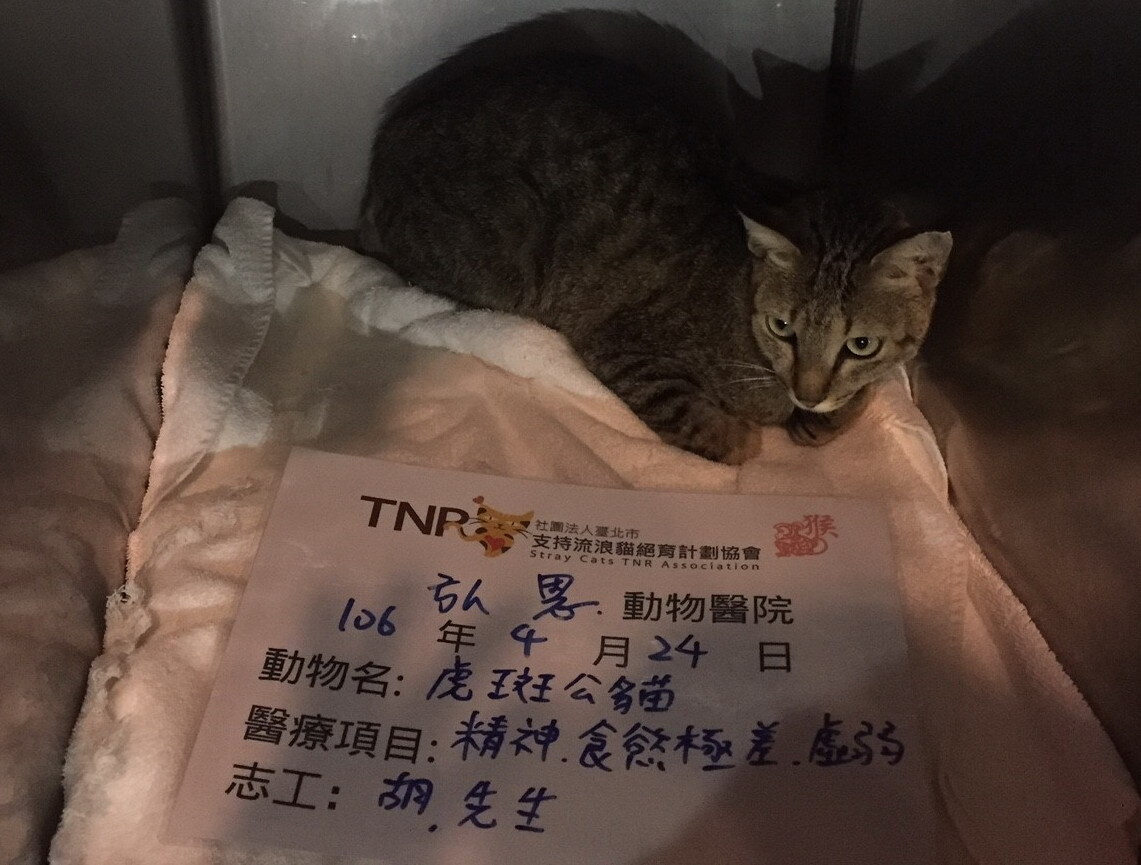 TNR
社團法人臺北市
支持流浪貓絕育計劃協會
Stray Cats TNR Association
弘恩 動物醫院
106 年 4 月 24 日
動物名: 虎斑公貓
醫療項目: 精神.食慾極差.虛弱
志工: 胡.先生